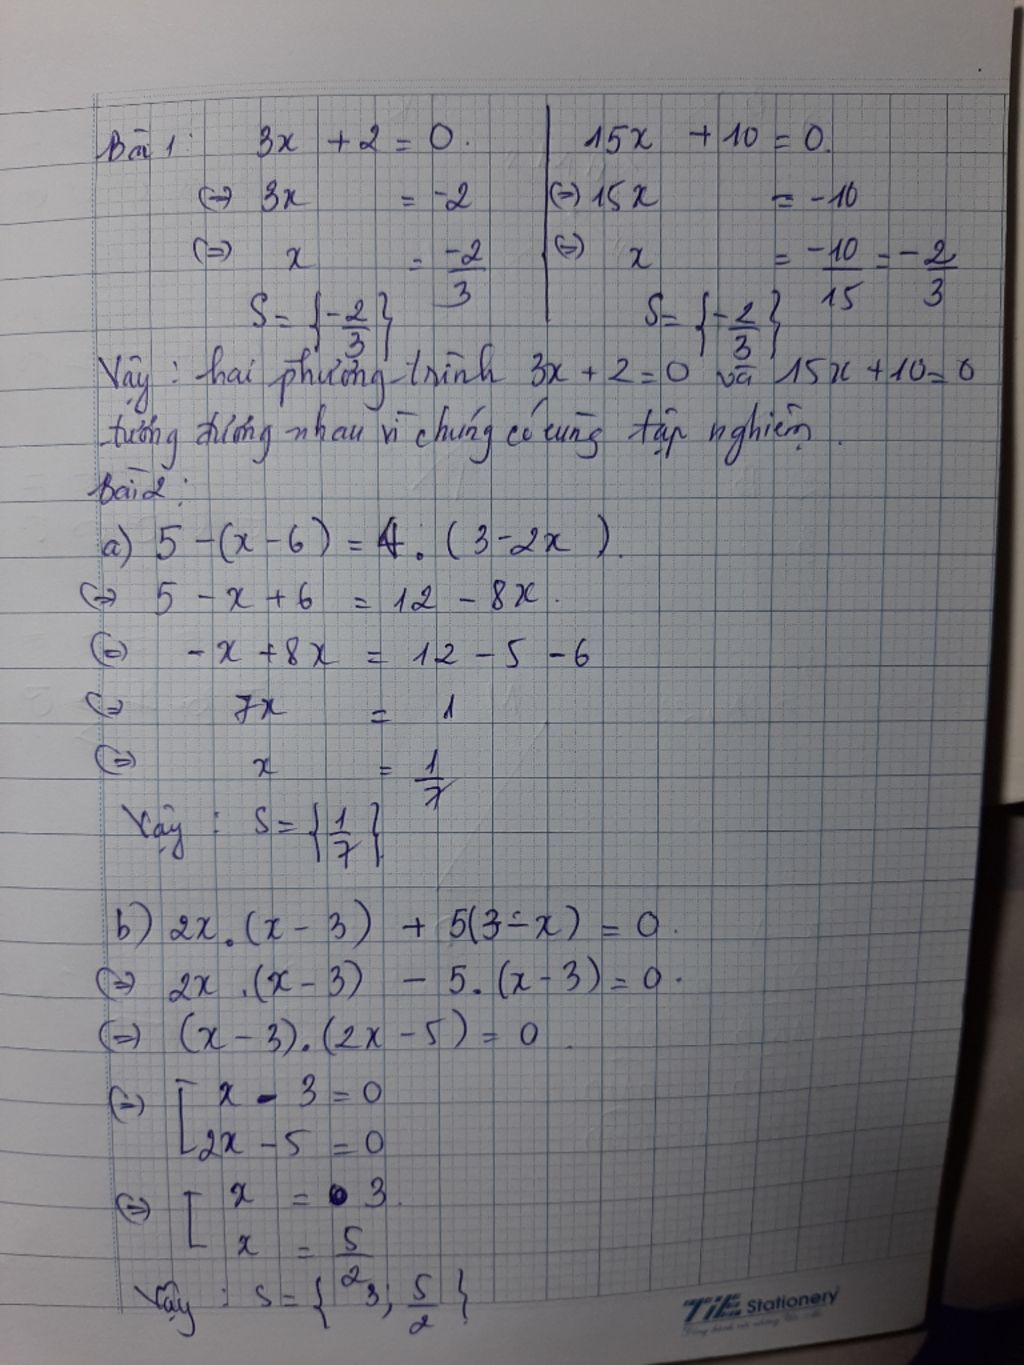 Bài 1: 3x + 2 = 0. | 15x + 10 = 0.
(=) 3x = -2 | (=) 15x = -10
(=) x = -2/3 | (=) x = -10/15 = -2/3
S = {-2/3} S = {-2/3}
Vậy : hai phương trình 3x + 2 = 0 và 15x + 10 = 0
tương đương nhau vì chúng có cùng tập nghiệm.
Bài 2:
a) 5 - (x - 6) = 4. (3 - 2x).
(=) 5 - x + 6 = 12 - 8x.
(=) -x + 8x = 12 - 5 - 6
(=) 7x = 1
(=) x = 1/7
Vậy : S = {1/7}
b) 2x.(x - 3) + 5(3 - x) = 0.
(=) 2x.(x - 3) - 5.(x - 3) = 0.
(=) (x - 3).(2x - 5) = 0.
(=) [ x - 3 = 0
2x - 5 = 0
(=) [ x = 3.
x = 5/2
Vậy : S = { 3; 5/2 }
TiE Stationery